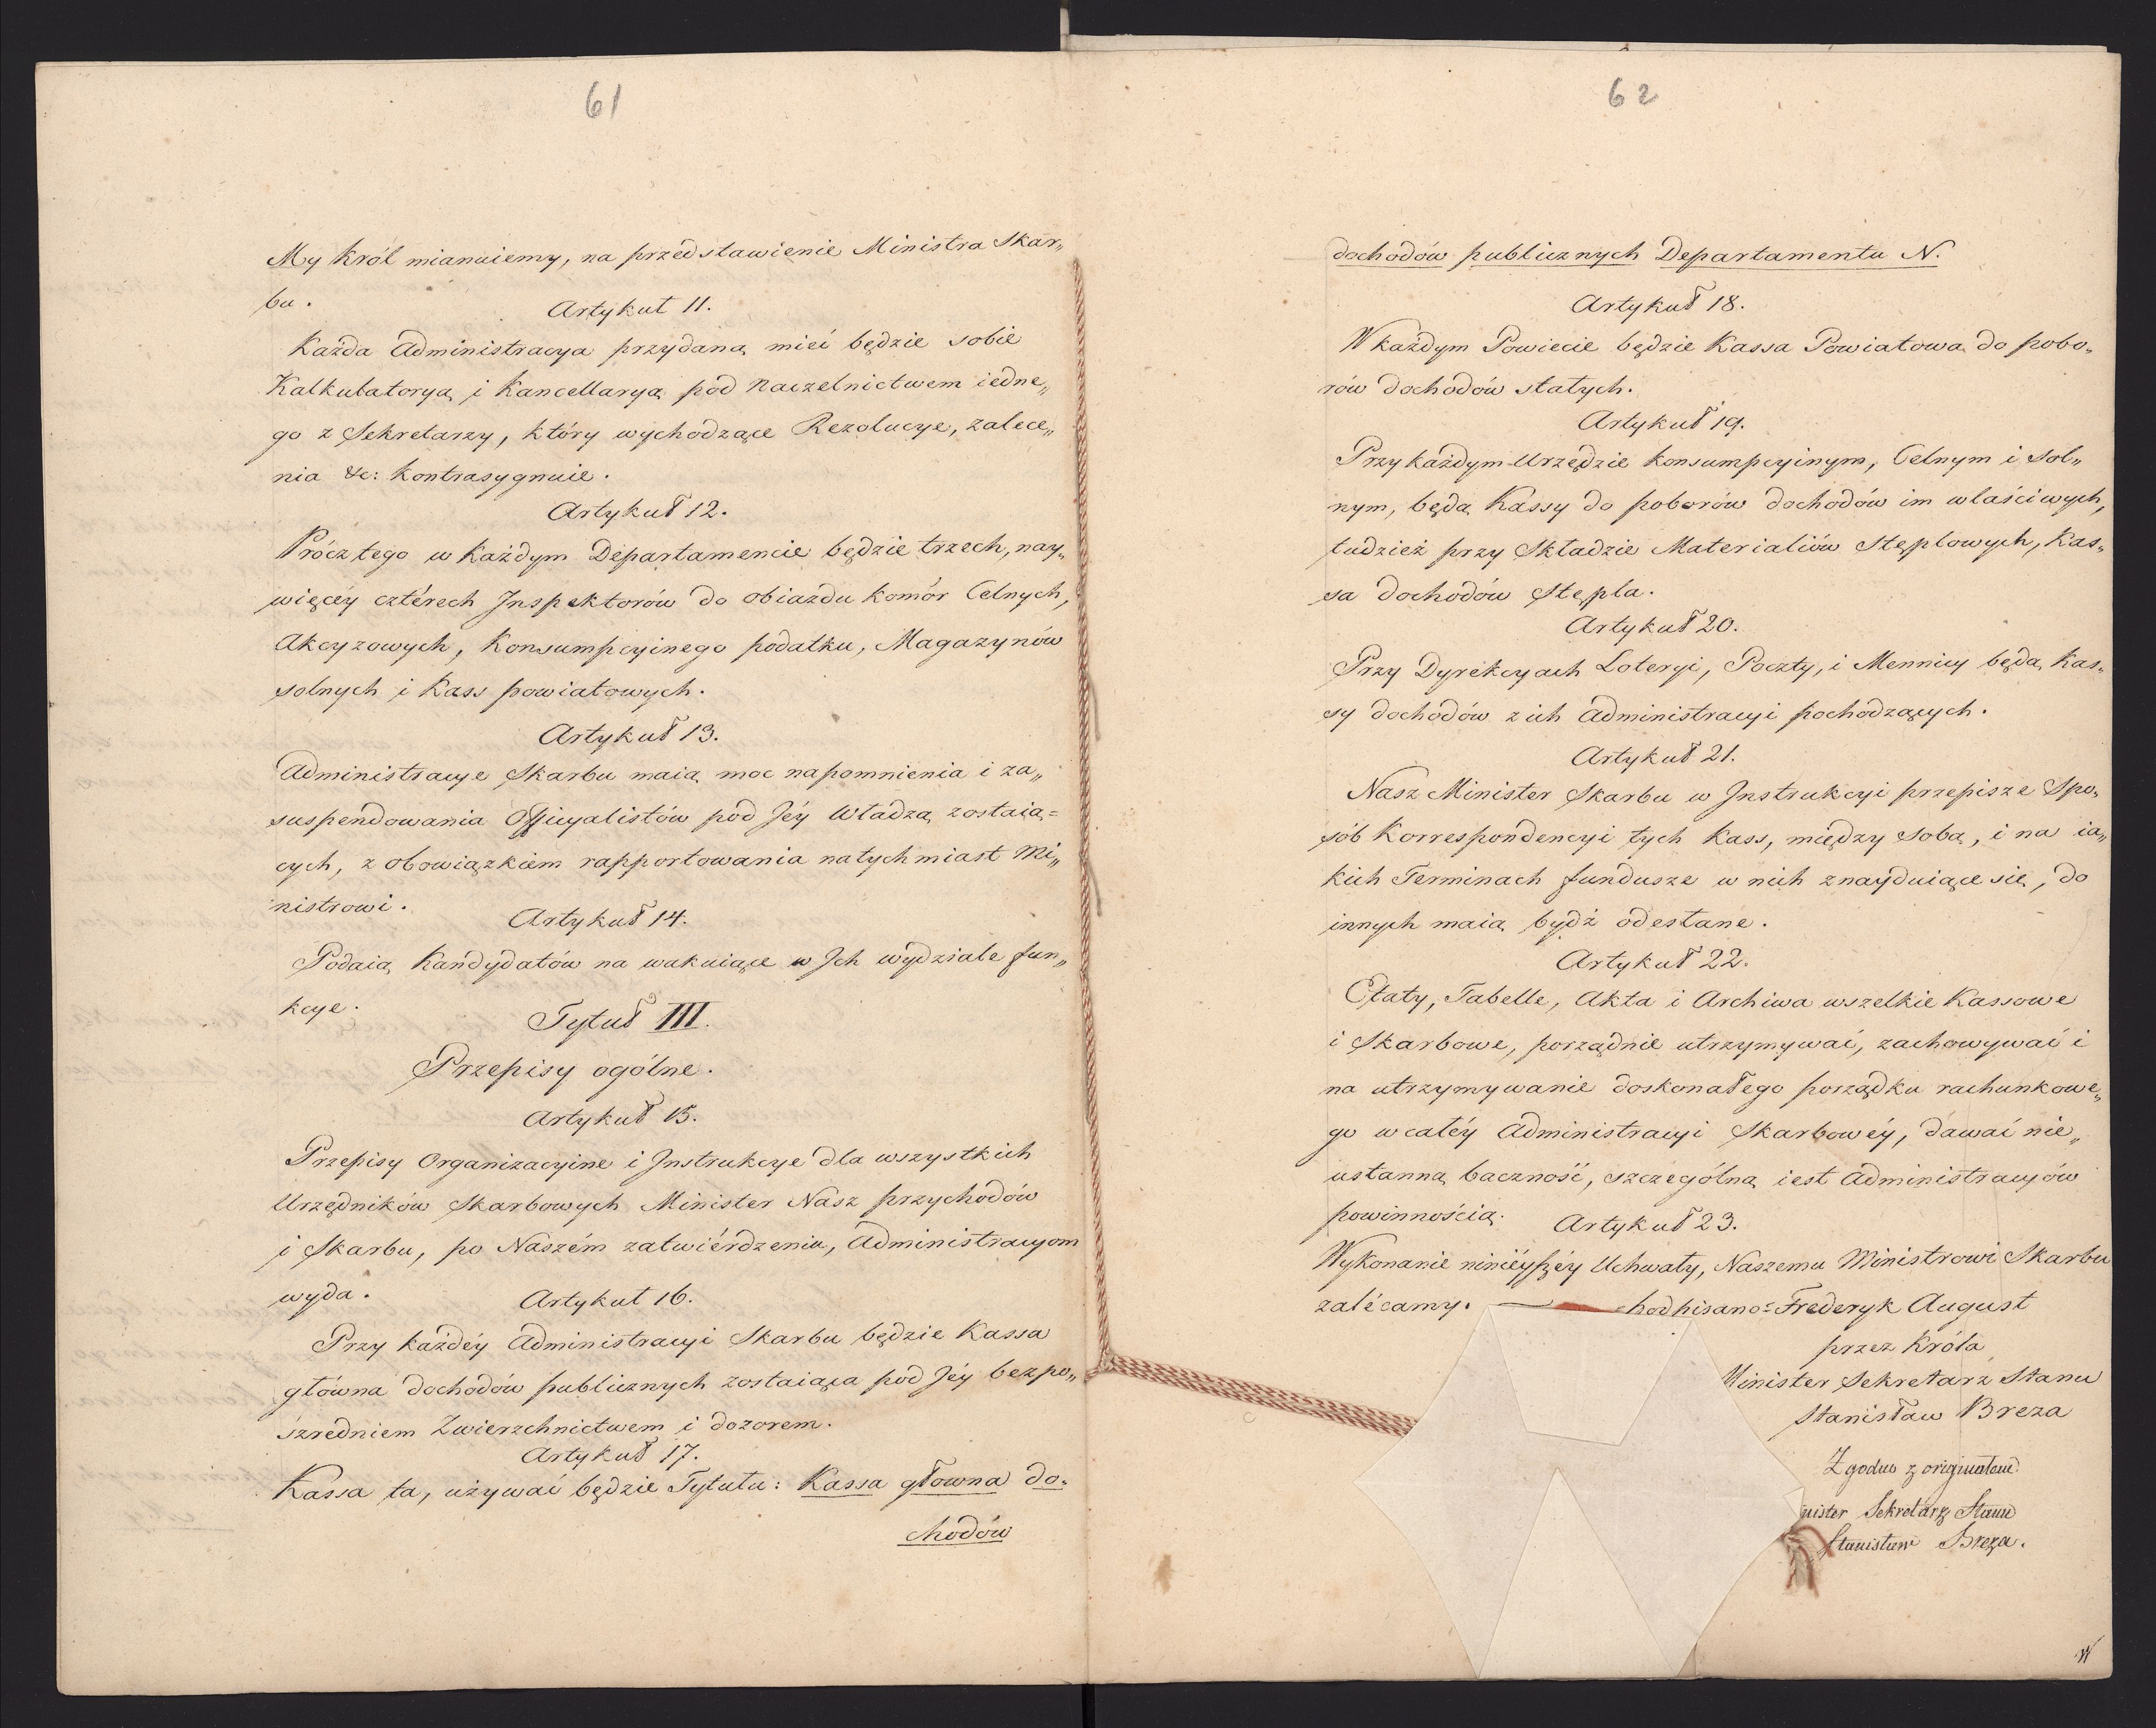 61
My Król mianuiemy, na przedstawienie Ministra Skar„
bu.
Artykuł 11.
Każda Administracya przydaną mieć będzie sobie
Kalkulatoryą i Kancellaryą pod Naczelnictwem iedne„
go z Sekretarzy, który wychodzące Rezolucye, zalece„
nia &c: kontrasygnuie.
Artykuł 12.
Prócz tego w każdym Departamencie będzie trzech, nay„
więcéy cztérech Inspektorów do obiazdu komór Celnych,
Akcyzowych, Konsumpcyinego podatku, Magazynów
solnych i Kass powiatowych.
Artykuł 13.
Administracye Skarbu maią moc napomnienia i za„
suspendowania Officyalistów pod Jéy Władzą zostaią=
cych, z obowiązkiem rapportowania natychmiast Mi„
nistrowi.
Artykuł 14.
Podaią Kandydatów na wakuiące w Jch wydziale fun„
kcye.
Tytuł III.
Przepisy ogólne.
Artykuł 15.
Przepisy Organizacyine i Instrukcye dla wszystkich
Urzędników Skarbowych Minister Nasz przychodów
i Skarbu, po Naszém zatwiérdzeniu, Administracyom
wyda.
Artykuł 16.
Przy każdéy Administracyi Skarbu będzie Kassa
główna dochodów publicznych zostaiąca pod Jéy bezpo„
szredniem Zwierzchnictwem i dozorem.
Artykuł 17.
Kassa ta, używać będzie Tytułu: Kassa głowna do„
chodów
62
dochodów publicznych Departamentu N.
Artykuł 18.
W każdym Powiecie będzie Kassa Powiatowa do pobo„
rów dochodów stałych.
Artykuł 19.
Przy każdym Urzędzie konsumpcyinym, Celnym i Sol„
nym, będą Kassy do poborów dochodów im właściwych,
tudzież przy Składzie Materialiów Stęplowych, Kas„
sa dochodów Stępla.
Artykuł 20.
Przy Dyrekcyach Loteryi, Poczty, i Mennicy będą Kas„
sy dochodów z ich Administracyi pochodzących.
Artykuł 21.
Nasz Minister Skarbu w Instrukcyi przepisze Spo„
sób Korrespondencyi tych Kass, między sobą, i na ia„
kich Terminach fundusze w nich znayduiące się, do
innych maią bydź odesłane.
Artykuł 22.
Etaty, Tabelle, Akta i Archiwa wszelkie Kassowe
i Skarbowe, porządnie utrzymywać, zachowywać i
na utrzymywanie doskonałego porządku rachunkowe„
go w całéy Administracyi Skarbowéy, dawać nie„
ustanną baczność, szczególną iest Administracyów
powinnością.
Artykuł 23.
Wykonanie niniéyszéy Uchwały, Naszemu Ministrowi Skarbu
zalécamy. podpisano=Frederyk August
przez Króla
Minister Sekretarz Stanu
Stanisław Breza
Zgodno z originałem
nister Sekretarz Stanu
Stanisław Breza.